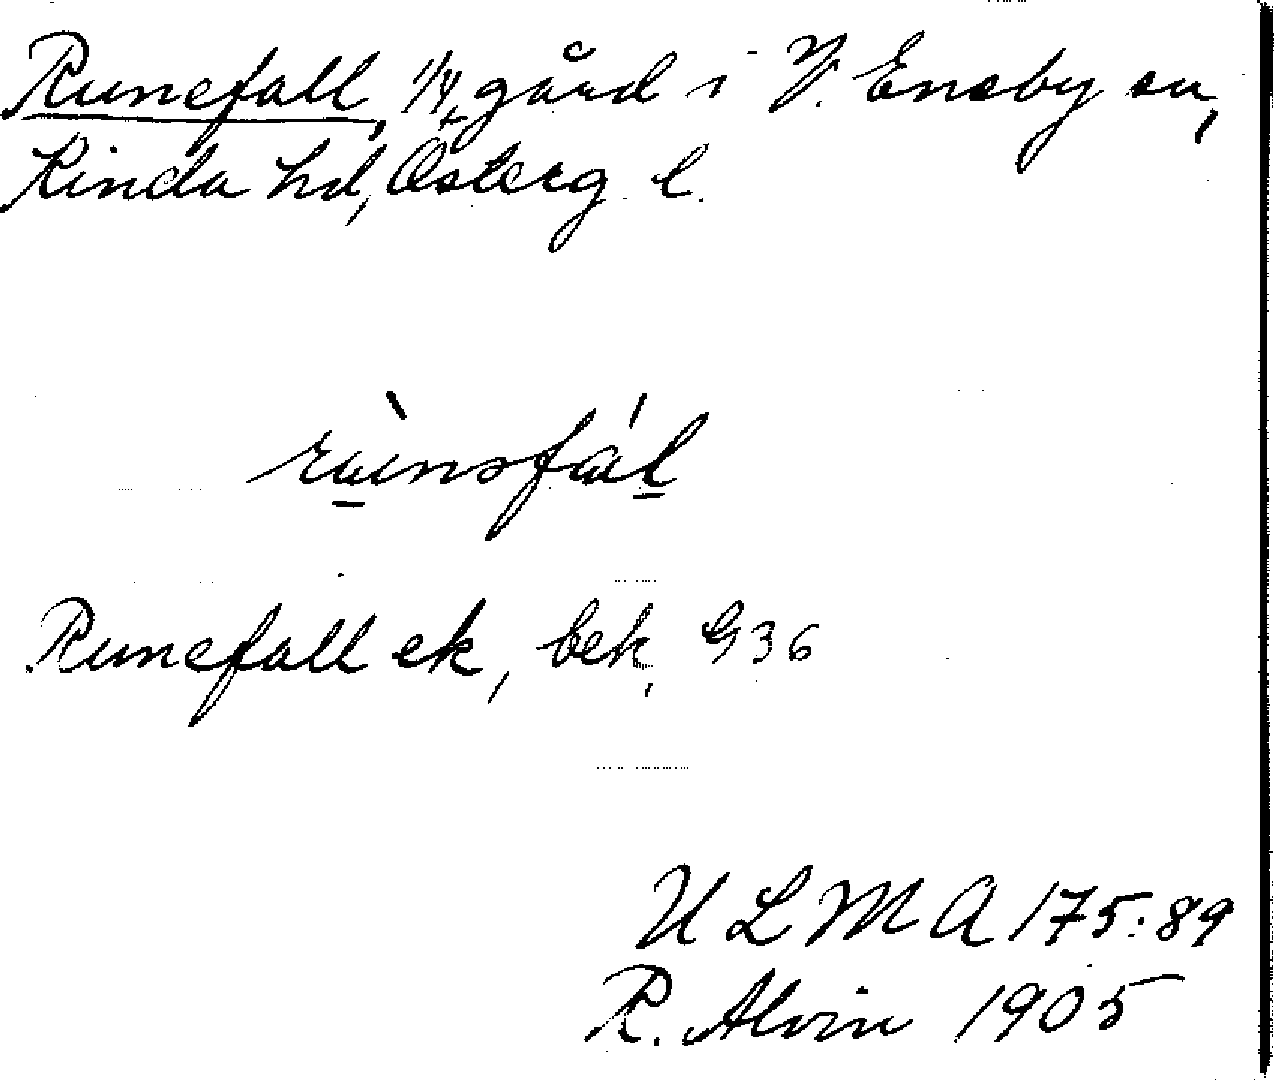 Runefall, 1/4 gård i V. Eneby sn,
Kinda hd, Österg l.
Runefall ek, bek, G36
ULMA 175:89
R. Alvin 1905